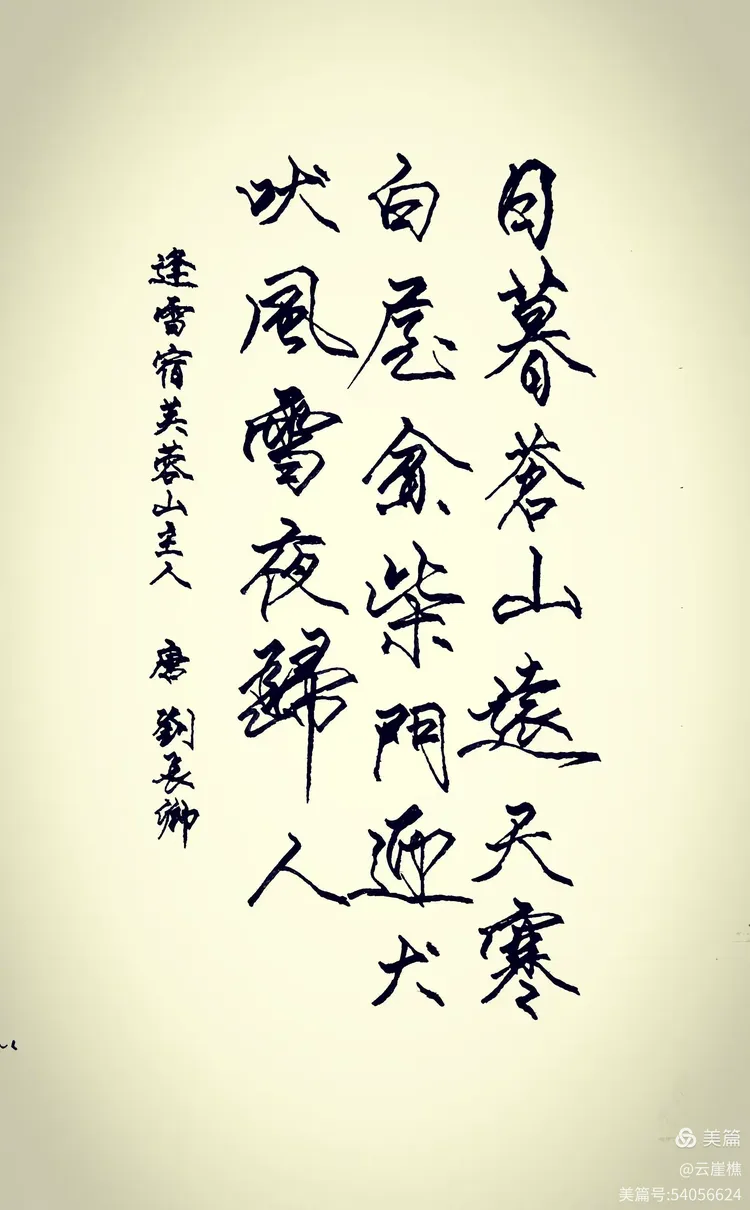 日暮蒼山遠天寒
白屋貧柴門迎犬
吠風雪夜歸人
逢雪宿芙蓉山主人 唐 劉長卿
美篇
@云崖樵
美篇号:54056624